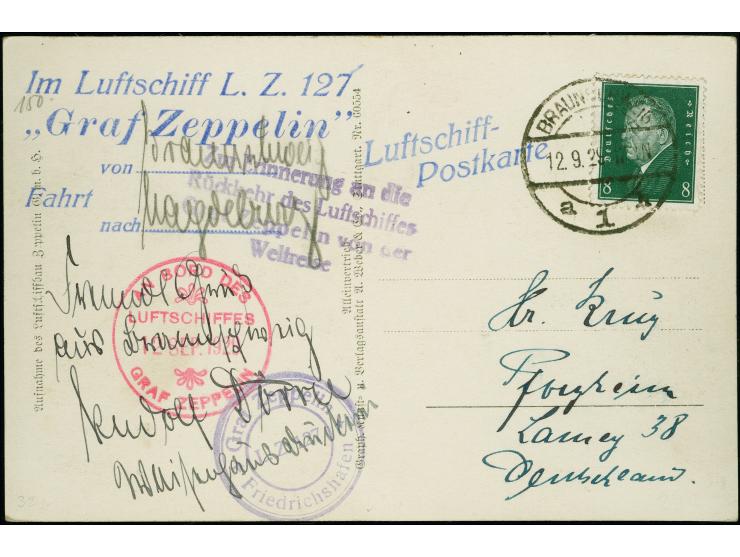 150.
Im Luftschiff L. Z. 127
„Graf Zeppelin”
von Braunschweig
Fahrt
nach Magdeburg
Luftschiff-
Postkarte
Zur Erinnerung an die
Rückkehr des Luftschiffes
Zeppelin von der
Weltreise
BRAUN
12.9.29
a 1 h
Deutsches Reich
8 8
AN BORD DES
LUFTSCHIFFES
12. SEP. 1929
GRAF ZEPPELIN
aus Braunschweig
Rudolf
Waisenhausdruckerei
Graf Zeppelin
L.Z. 127
Friedrichshafen
Hr. Krug
Pforzheim
Lamey 38
Deutschland.
Aufnahme des Luftschiffbau Zeppelin G.m.b.H.
Alleinvertrieb
Graph. Kunst- u. Verlagsanstalt A. Weber & Co., Stuttgart. Nr. 60554